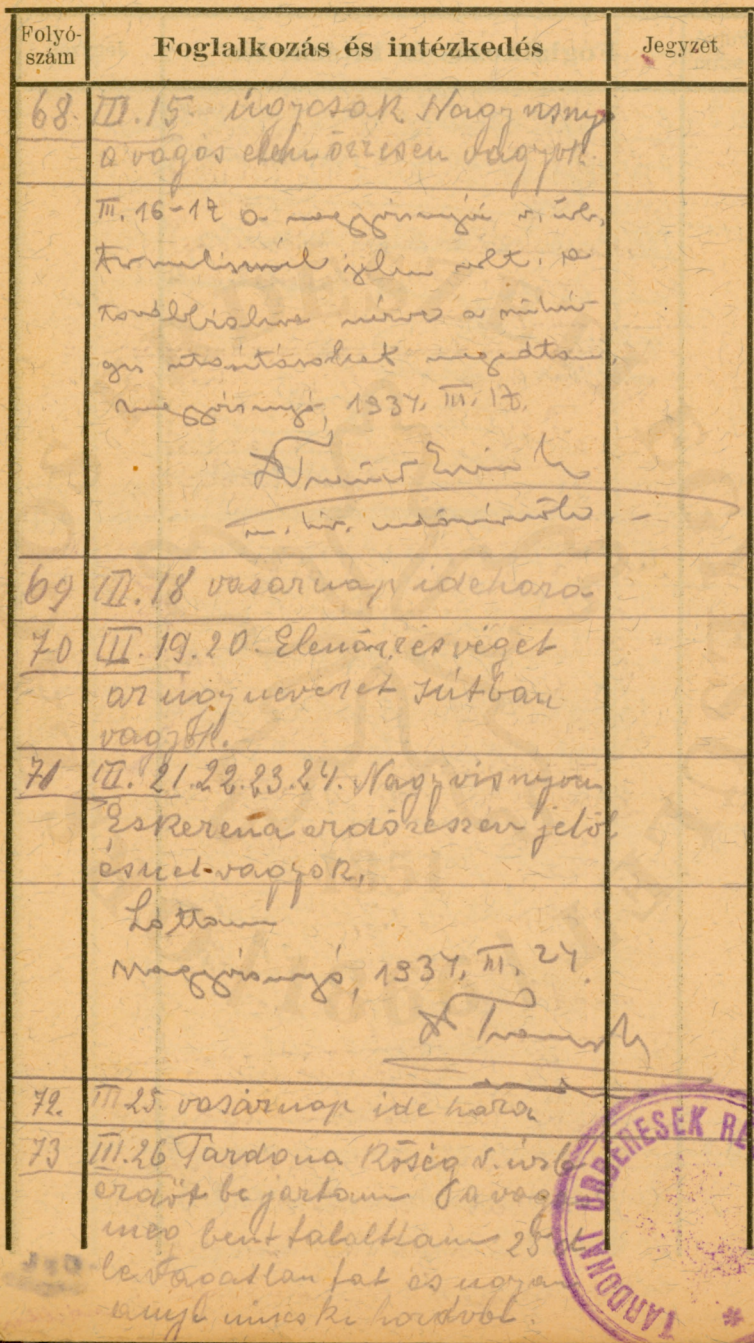 Folyó-
szám
Foglalkozás és intézkedés
Jegyzet
68. III. 15. úgycsak Nagyvisnyo
a vágás elen őrzésen vagyok.
III. 16-17 a nagyvisnyói v. úrb.
jelen volt. a
továbbiakra nézve a
utasításokat megadtam.
Nagyvisnyó, 1934. III. 17.
69 III. 18 vasárnap idehaza
70 III. 19. 20. Elenőrzés véget
az ugynevezet Sútban
vagyok.
71 III. 21. 22. 23. 24. Nagyvisnyon
Eskerena erdőrészen jelöl
ésnel vagyok.
Láttam
Nagyvisnyó, 1934. III. 24.
72. III 25 vasárnap ide haza
73 III. 26 Tardona Község v. úrb
erdőt be jártam a vag
meg bent talaltam 25
le vágatlan fat és ugyan
anyi nincs ki hordva.
TARDONAI ÚRBÉRESEK